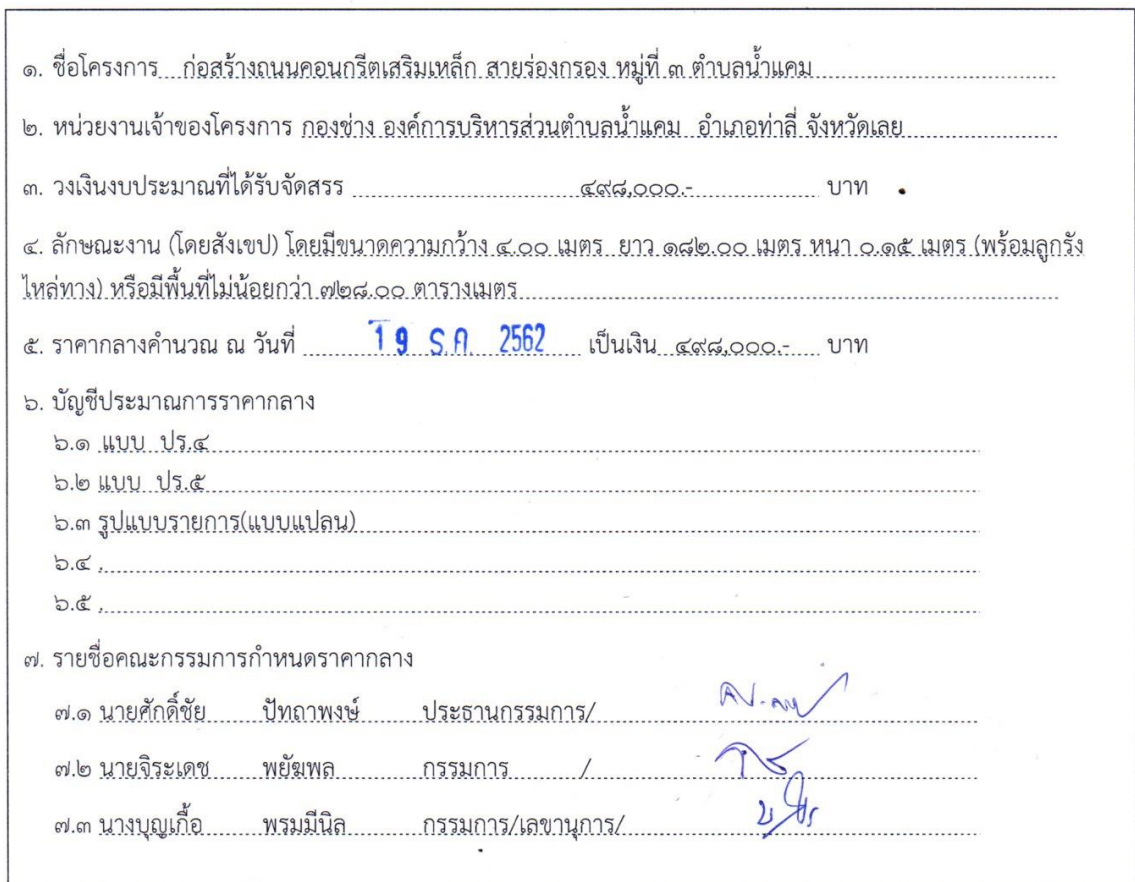 ๑. ชื่อโครงการ ก่อสร้างถนนคอนกรีตเสริมเหล็ก สายร่องกรอง หมู่ที่ ๓ ตำบลน้ำแคม
๒. หน่วยงานเจ้าของโครงการ กองช่าง องค์การบริหารส่วนตำบลน้ำแคม อำเภอท่าลี่ จังหวัดเลย
๓. วงเงินงบประมาณที่ได้รับจัดสรร ๔๙๘,๐๐๐.- บาท
๔. ลักษณะงาน (โดยสังเขป) โดยมีขนาดความกว้าง ๔.๐๐ เมตร ยาว ๑๘๒.๐๐ เมตร หนา ๐.๑๕ เมตร (พร้อมลูกรัง
ไหล่ทาง) หรือมีพื้นที่ไม่น้อยกว่า ๗๒๘.๐๐ ตารางเมตร
๕. ราคากลางคำนวณ ณ วันที่ 19 ธ.ค. 2562 เป็นเงิน ๔๙๘,๐๐๐.- บาท
๖. บัญชีประมาณการราคากลาง
๖.๑ แบบ ปร.๔
๖.๒ แบบ ปร.๕
๖.๓ รูปแบบรายการ(แบบแปลน)
๖.๔ .
๖.๕ .
๗. รายชื่อคณะกรรมการกำหนดราคากลาง
๗.๑ นายศักดิ์ชัย ปัทถาพงษ์ ประธานกรรมการ/
๗.๒ นายจิระเดช พยัฆพล กรรมการ /
๗.๓ นางบุญเกื้อ พรมมีนิล กรรมการ/เลขานุการ/